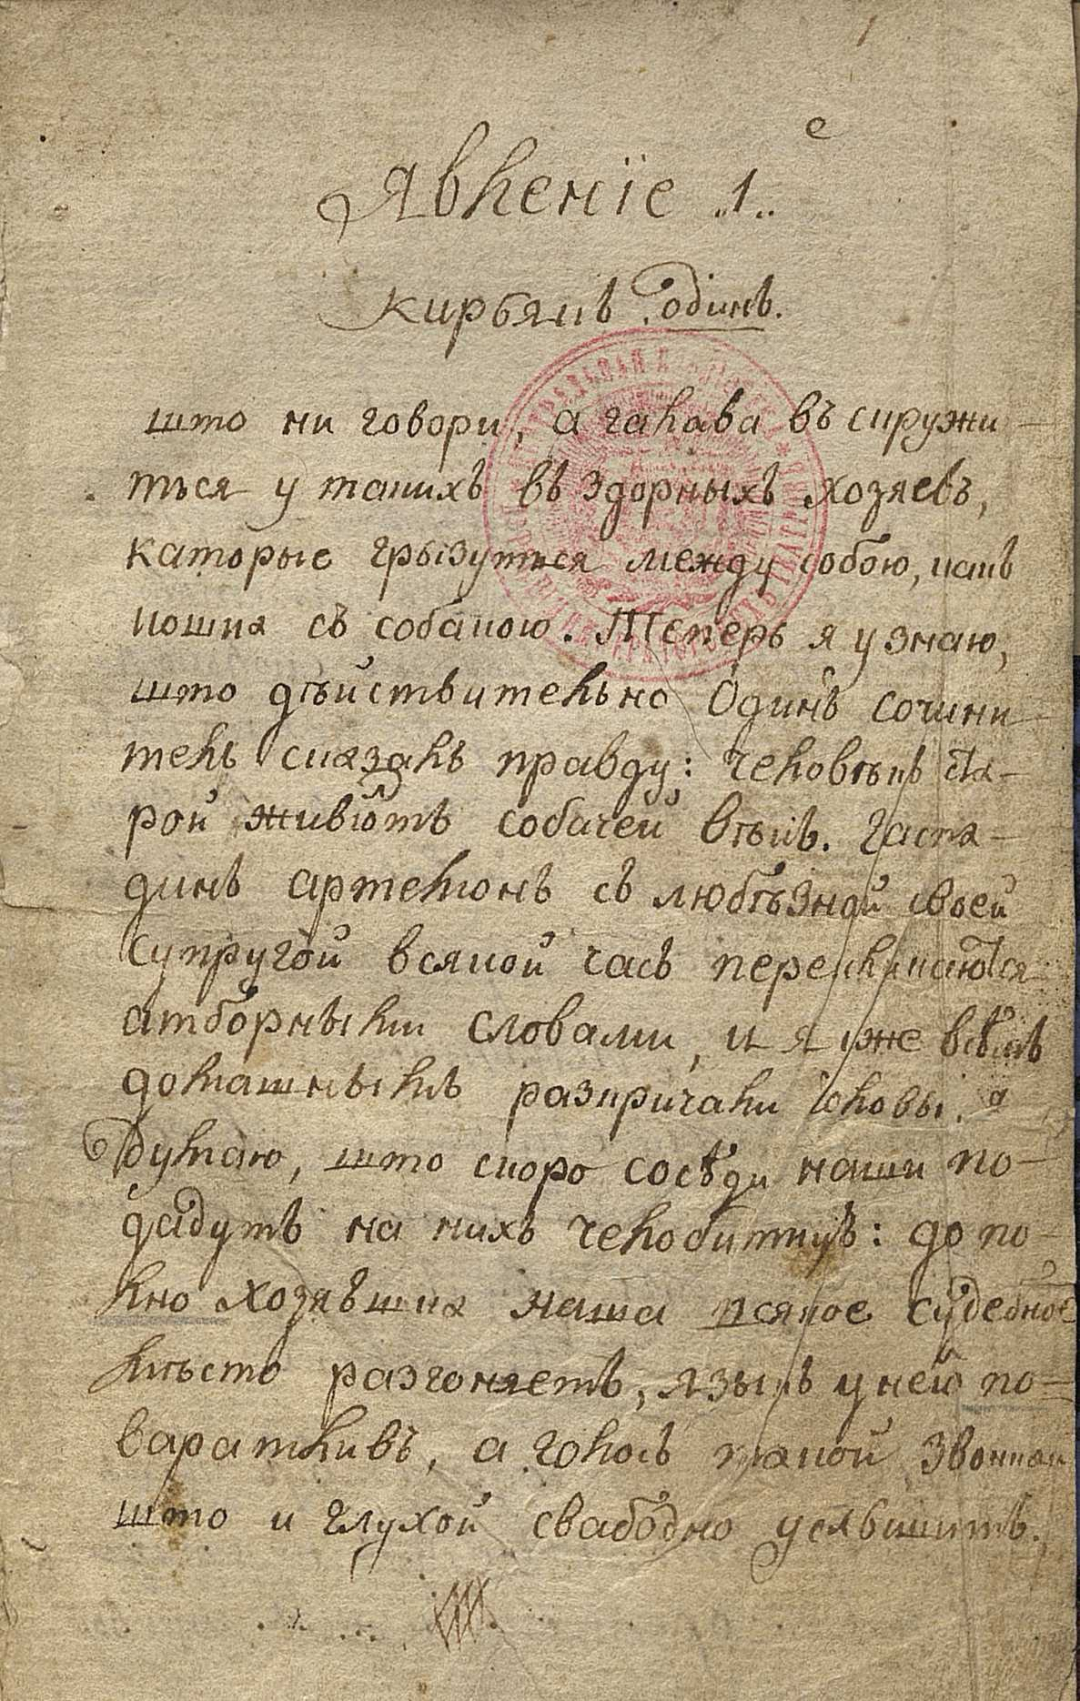 1
Явленїе ..1..е
Кирбянъ одинъ.
што ни говори, а галава въскружи-
ться у такихъ въздорныхъ хозяевъ,
каторые грызуться между собою, какъ
кошка съ собакою. Теперь я узнаю,
што дѣйствительно Одинъ сочини-
тель сказалъ правду: человѣкъ ста-
рой живіотъ собачей вѣкъ. Гаспа-
динъ артемонъ съ любѣзной своей
супругой всякой часъ перекликаются
атборными словами, и я уже всѣмъ
домашнымъ разпричали
Думаю, што скоро сосѣди наши по-
дадутъ на нихъ челобитную: до по-
лно хозявшка наша всякое судебное
мѣсто разгоняетъ, языкъ у ней по-
варатливъ, а голосъ такой звонкой
што и глухой свабодно услышитъ.